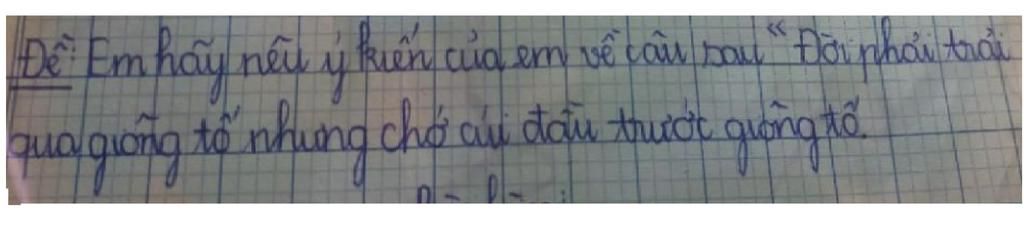 Đề: Em hãy nêu ý kiến của em về câu sau "Đời phải trải
qua giông tố nhưng chớ cúi đầu trước giông tố.